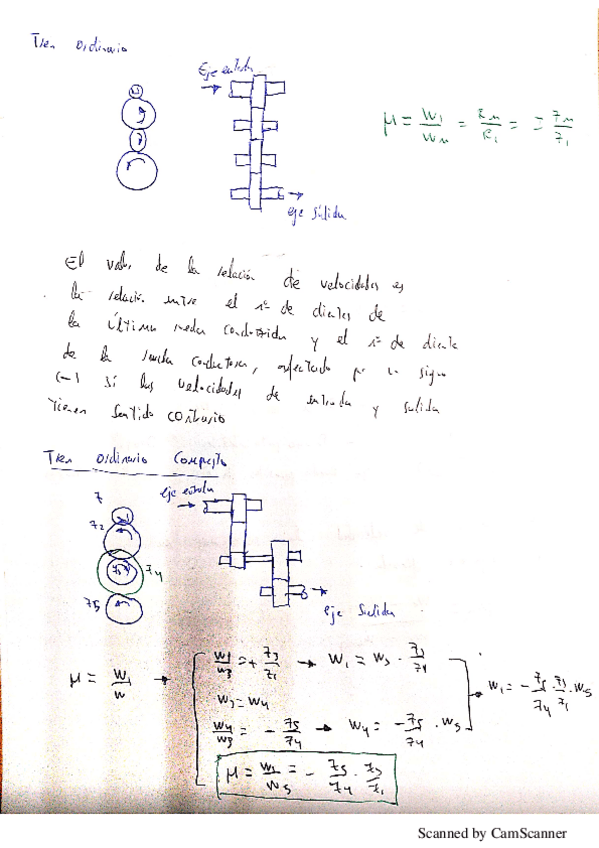 Tren ordinario
Eje entrada
μ = w1/wn = Rn/R1 = = Zn/Z1
eje salida
El valor de la relación de velocidades es
la relación entre el nº de dientes de
la última rueda conducida y el nº de diente
de la rueda conductora, afectado por un signo
(-) si las velocidades de entrada y salida
tienen sentido contrario
Tren ordinario Compuesto
eje entrada
Z
Z2
Z3
Z4
Z5
eje Salida
μ = w1/w → w1/w3 = + Z3/Z1 → w1 = w3 · Z3/Z4
w3 = w4
w4/w3 = - Z5/Z4 → w4 = - Z5/Z4 · w5
w1 = - Z5/Z4 · Z3/Z1 · w5
μ = w1/w5 = - Z5/Z4 · Z3/Z1
Scanned by CamScanner